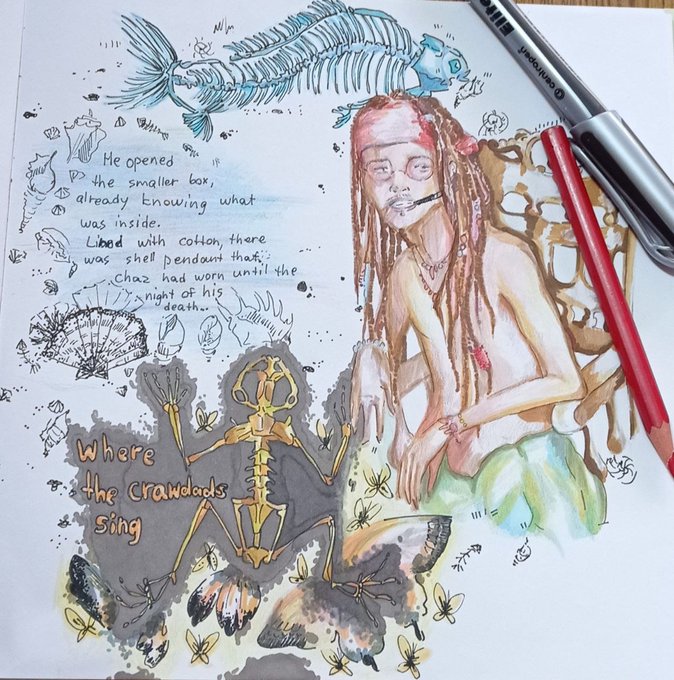 He opened
the smaller box,
already knowing what
was inside.
Lined with cotton, there
was shell pendant that
Chaz had worn until the
night of his
death..
Where
the crawdads
sing
Elite
centropen